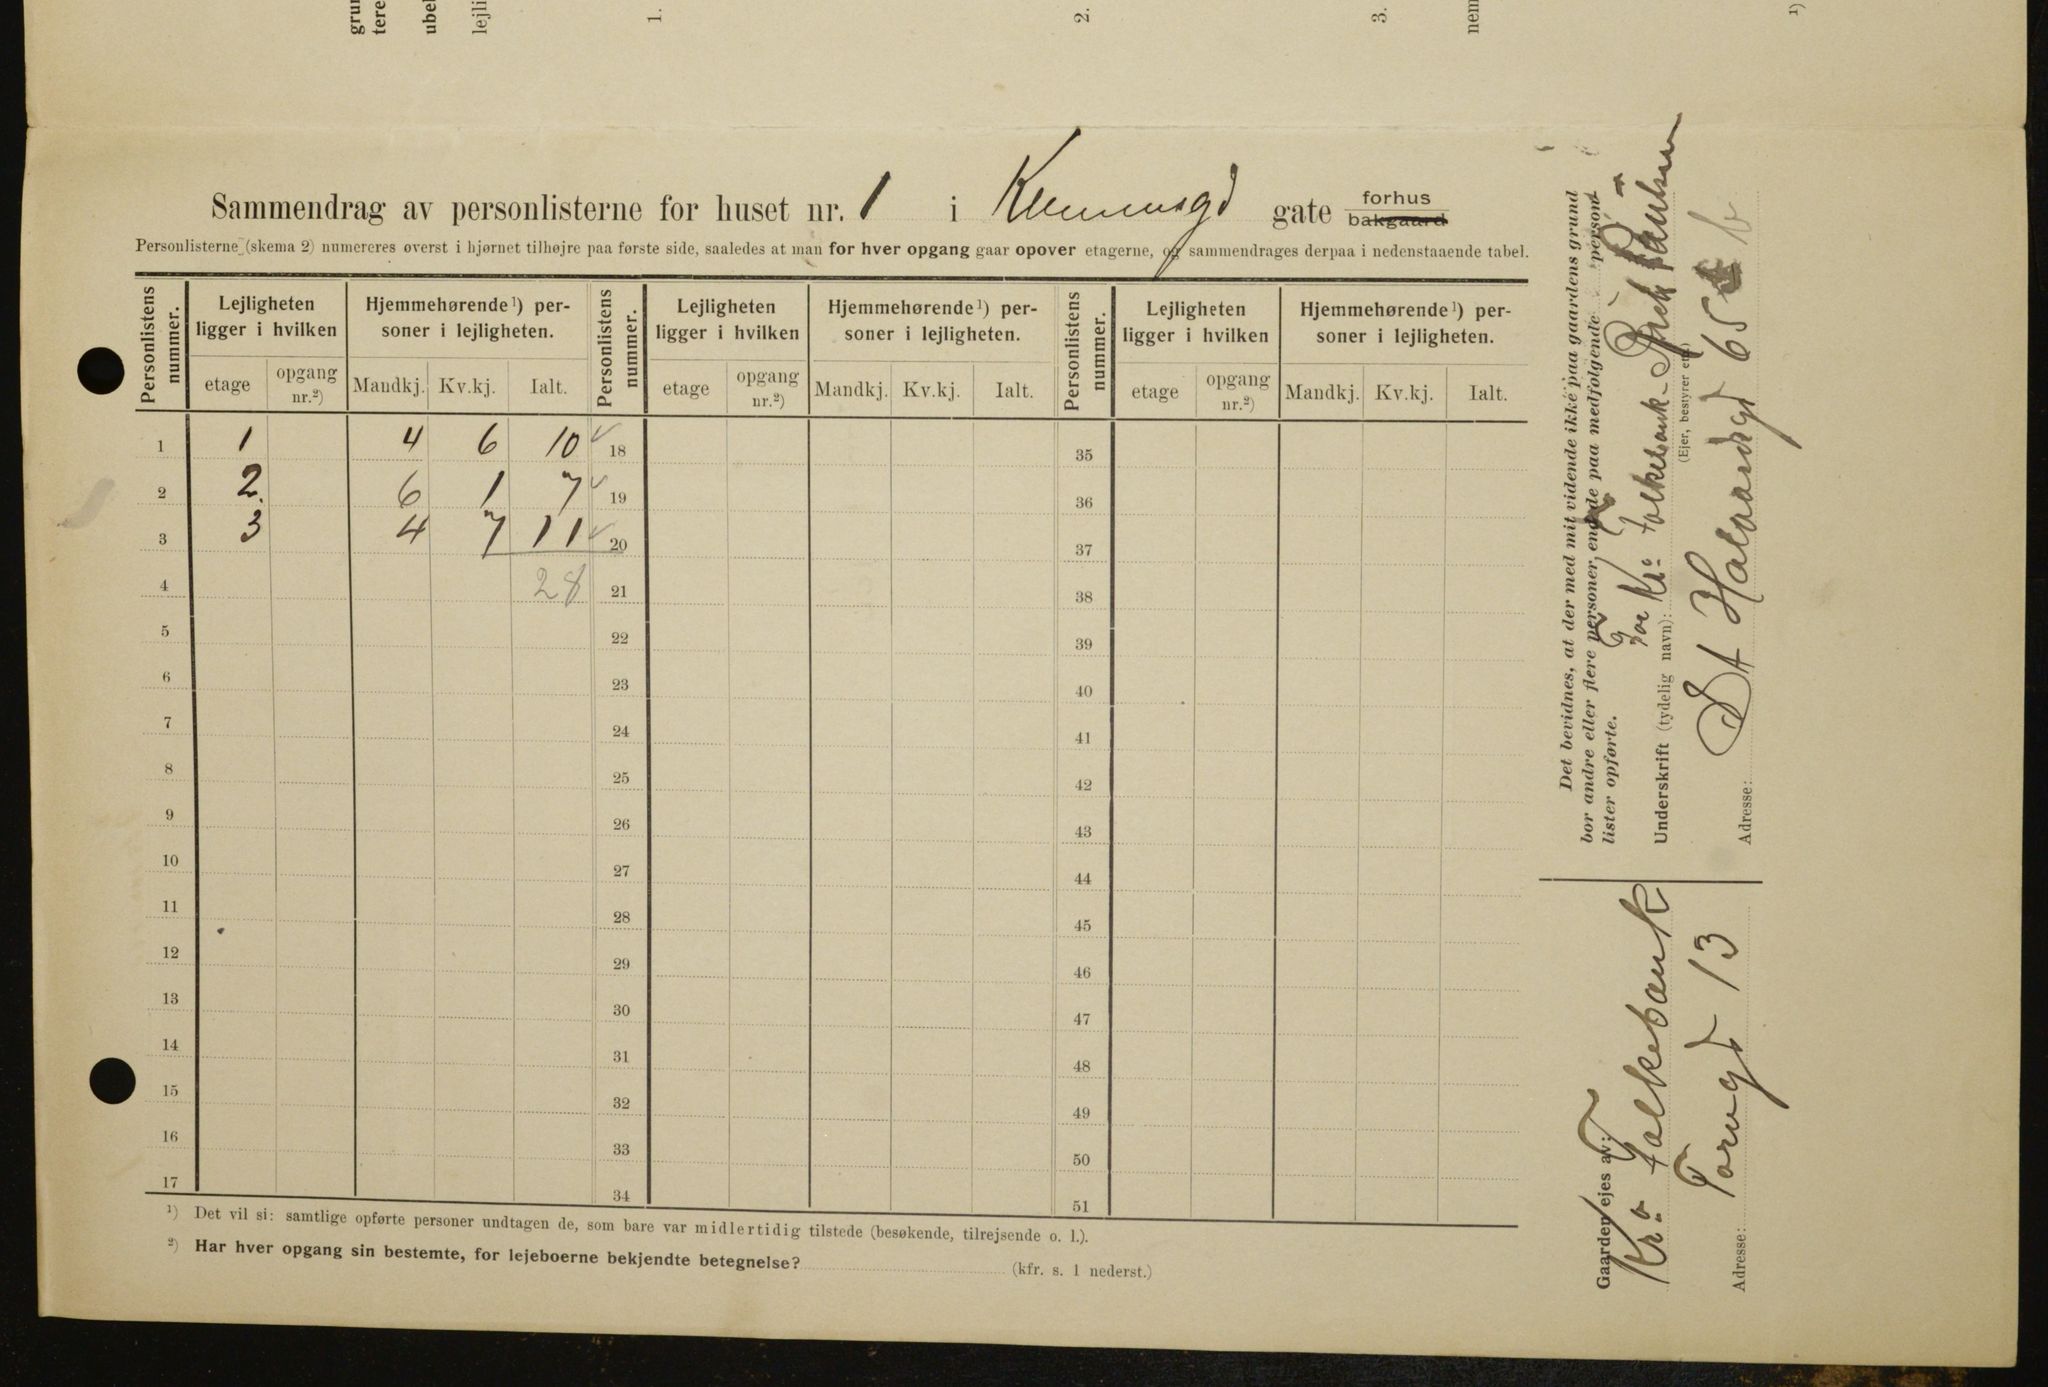 grun
tere
ubel
lejli
1.
2.
3.
nem
¹)
Sammendrag av personlisterne for huset nr. 1 i gate forhus bakgaard
Personlisterne (skema 2) numereres øverst i hjørnet tilhøjre paa første side, saaledes at man for hver opgang gaar opover etagerne, og sammendrages derpaa i nedenstaaende tabel.
Personlistens nummer. Lejligheten ligger i hvilken Hjemmehørende¹) personer i lejligheten. Personlistens nummer. Lejligheten ligger i hvilken Hjemmehørende¹) personer i lejligheten. Personlistens nummer. Lejligheten ligger i hvilken Hjemmehørende¹) personer i lejligheten.
etage opgang nr.²) Mandkj. Kv.kj. Ialt. etage opgang nr.²) Mandkj. Kv.kj. Ialt. etage opgang nr.²) Mandkj. Kv.kj. Ialt.
1 1 4 6 10 ✓ 18 35
2 2. 6 1 7 ✓ 19 36
3 3 4 7 11 ✓ 20 37
4 28 21 38
5 22 39
6 23 40
7 24 41
8 25 42
9 26 43
10 27 44
11 28 45
12 29 46
13 30 47
14 31 48
15 32 49
16 33 50
17 34 51
¹) Det vil si: samtlige opførte personer undtagen de, som bare var midlertidig tilstede (besøkende, tilrejsende o. l.).
²) Har hver opgang sin bestemte, for lejeboerne bekjendte betegnelse? (kfr. s. 1 nederst.)
Det bevidnes, at der med mit vidende ikke paa gaardens grund
bor andre eller flere personer, end de paa medfølgende personlister opførte.
For Kr.a Folkebank
Underskrift (tydelig navn): Paulsen
(Ejer, bestyrer etc.)
Adresse: St Halvardsgd 65 b
Gaarden ejes av:
Kr.a Folkebank
Adresse: Torvgd 13